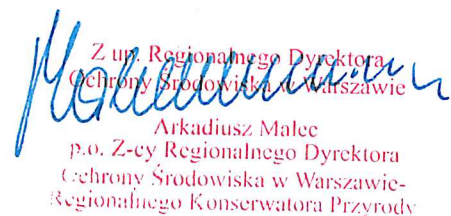 Z up. Regionalnego Dyrektora
Ochrony Środowiska w Warszawie
Arkadiusz Malec
p.o. Z-cy Regionalnego Dyrektora
Ochrony Środowiska w Warszawie-
Regionalnego Konserwatora Przyrody